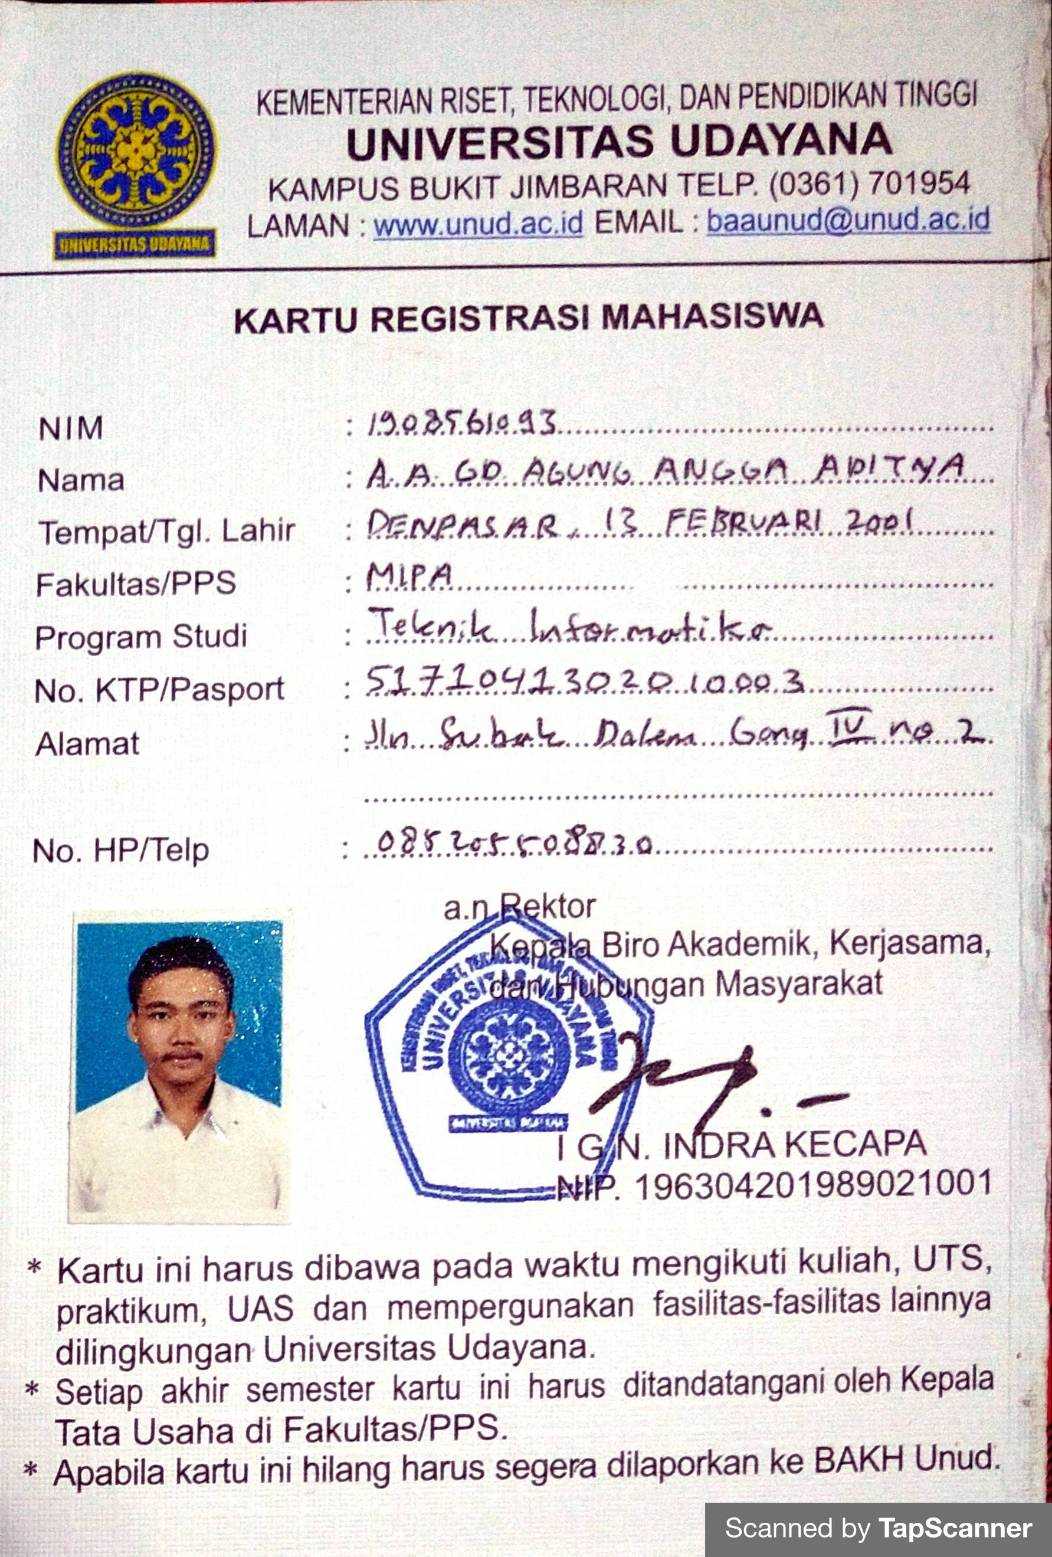 KEMENTERIAN RISET, TEKNOLOGI, DAN PENDIDIKAN TINGGI
UNIVERSITAS UDAYANA
KAMPUS BUKIT JIMBARAN TELP. (0361) 701954
LAMAN : www.unud.ac.id EMAIL : baaunud@unud.ac.id
UNIVERSITAS UDAYANA
KARTU REGISTRASI MAHASISWA
NIM : 1908561093
Nama : A.A. GD. AGUNG ANGGA ADITYA
Tempat/Tgl. Lahir : DENPASAR, 13 FEBRUARI 2001
Fakultas/PPS : MIPA
Program Studi : Teknik Informatika
No. KTP/Pasport : 5171041302010003
Alamat : Jln Subak Dalem Gang IV no 2
No. HP/Telp : 085205508830
a.n Rektor
Kepala Biro Akademik, Kerjasama,
dan Hubungan Masyarakat
UNIVERSITAS UDAYANA
UNIVERSITAS UDAYANA
I G N. INDRA KECAPA
NIP. 196304201989021001
* Kartu ini harus dibawa pada waktu mengikuti kuliah, UTS,
praktikum, UAS dan mempergunakan fasilitas-fasilitas lainnya
dilingkungan Universitas Udayana.
* Setiap akhir semester kartu ini harus ditandatangani oleh Kepala
Tata Usaha di Fakultas/PPS.
* Apabila kartu ini hilang harus segera dilaporkan ke BAKH Unud.
Scanned by TapScanner